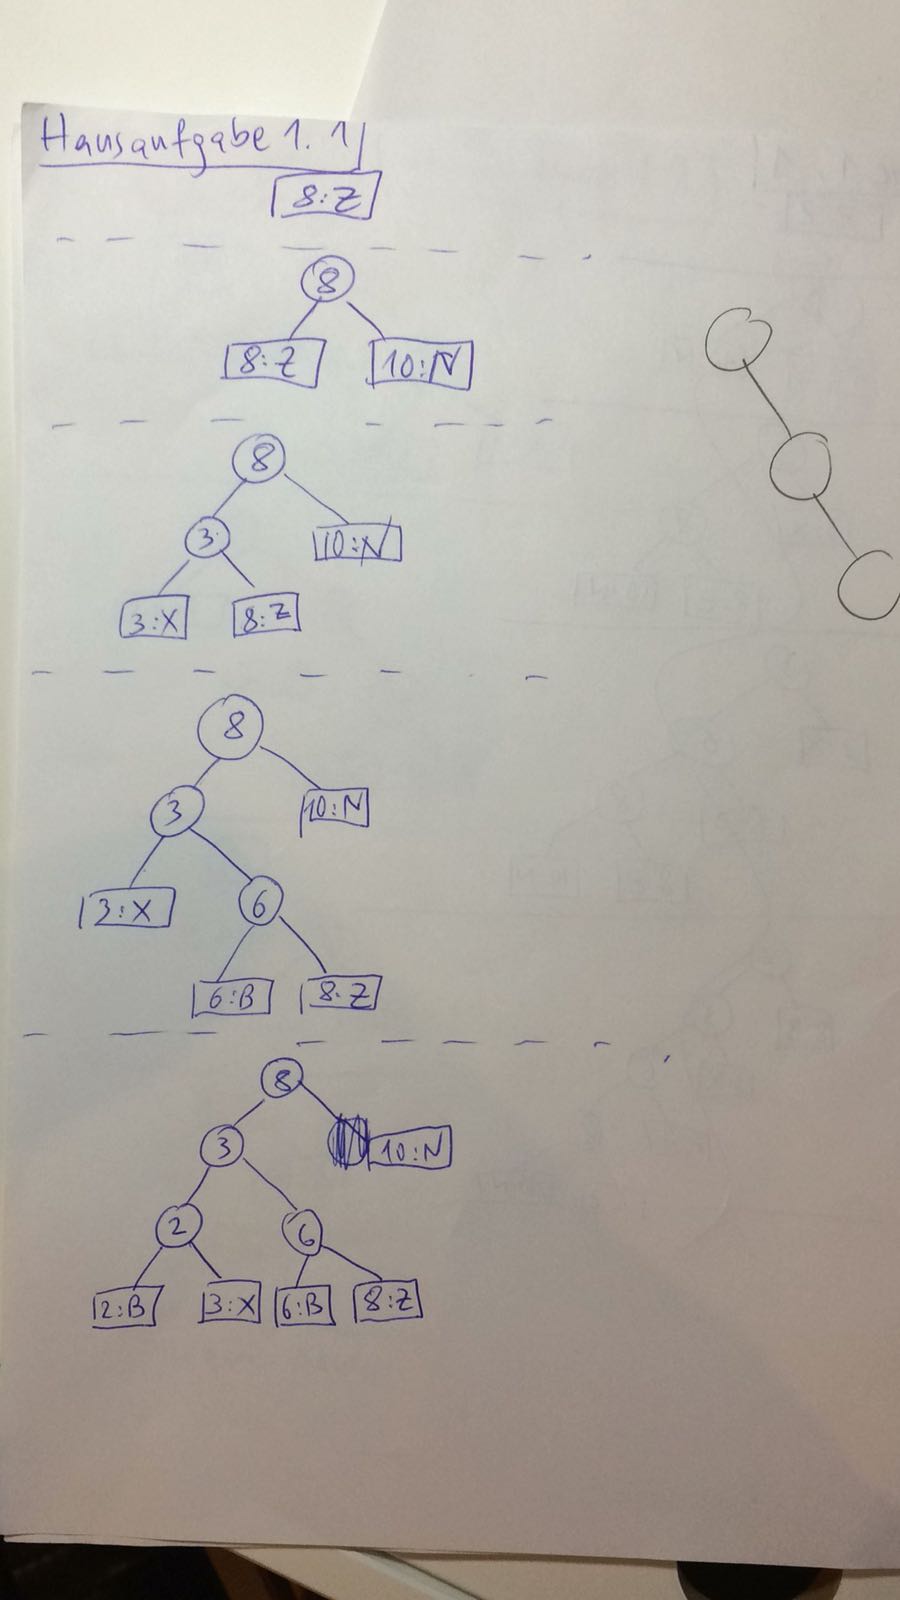 Hausaufgabe 1.1
8:Z
8
8:Z 10:N
8
3 10:N
3:X 8:Z
8
3 10:N
3:X 6
6:B 8:Z
8
3 10:N
2 6
2:B 3:X 6:B 8:Z